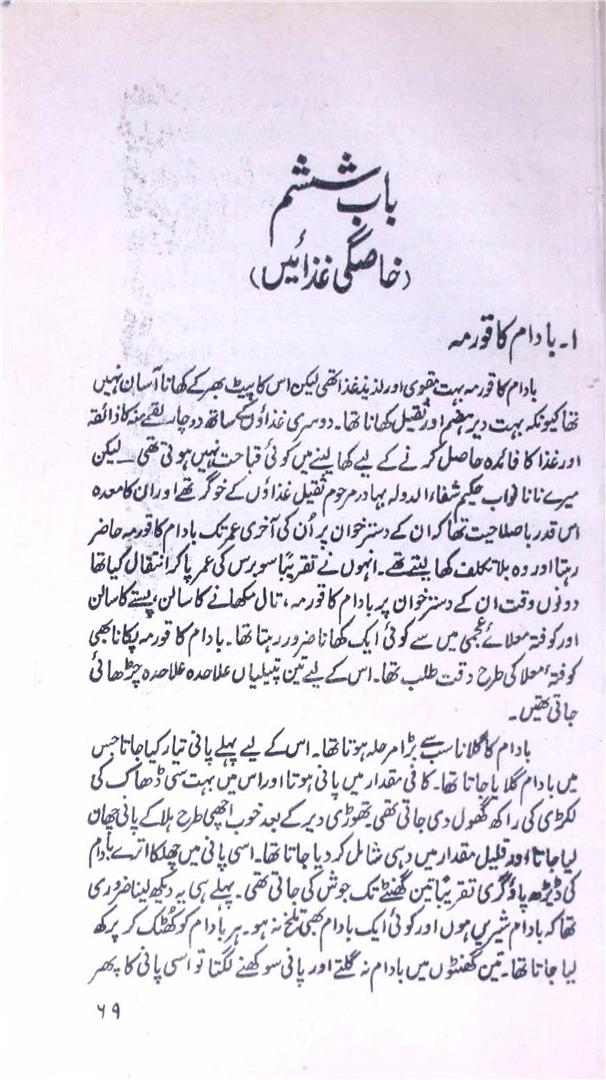 باب ششم
(خاصگی غذائیں)
۱۔ بادام کا قورمہ
بادام کا قورمہ بہت مقوی اور لذیذ غذا تھی لیکن اس کا پیٹ بھر کے کھانا آسان نہیں
تھا کیونکہ بہت دیر ہضم اور ثقیل کھانا تھا۔ دوسری غذاؤں کے ساتھ دو چار لقمے منہ کا ذائقہ
اور غذا کا فائدہ حاصل کرنے کے لیے کھا لینے میں کوئی قباحت نہیں ہوتی تھی۔ لیکن
میرے نانا نواب حکیم شفاء الدولہ بہادر مرحوم ثقیل غذاؤں کے خوگر تھے اور ان کا معدہ
اس قدر با صلاحیت تھا کہ ان کے دسترخوان پر اُن کی آخری عمر تک بادام کا قورمہ حاضر
رہتا اور وہ بلا تکلف کھا لیتے تھے۔ انہوں نے تقریبًا سو برس کی عمر پا کر انتقال کیا تھا
دونوں وقت ان کے دسترخوان پر بادام کا قورمہ، تال مکھانے کا سالن، پستے کا سالن
اور کوفتہ معلائے عجمی میں سے کوئی ایک کھانا ضرور رہتا تھا۔ بادام کا قورمہ پکانا بھی
کوفتہ معلا کی طرح دقت طلب تھا۔ اس کے لیے تین پتیلیاں علاحدہ علاحدہ چڑھائی
جاتی تھیں۔
بادام کا گلانا سب سے بڑا مرحلہ ہوتا تھا۔ اس کے لیے پہلے پانی تیار کیا جاتا جس
میں بادام گلایا جاتا تھا۔ کافی مقدار میں پانی ہوتا اور اس میں بہت سی ڈھاک کی
لکڑی کی راکھ گھول دی جاتی تھی۔ تھوڑی دیر کے بعد خوب اچھی طرح ہلا کے پانی چھان
لیا جاتا اور قلیل مقدار میں دہی شامل کر دیا جاتا تھا۔ اسی پانی میں چھلکا اترے بادام
کی ڈیڑھ پاؤ گری تقریبًا تین گھنٹے تک جوش کی جاتی تھی۔ پہلے ہی یہ دیکھ لینا ضروری
تھا کہ بادام شیریں ہوں اور کوئی ایک بادام بھی تلخ نہ ہو۔ ہر بادام کو کھٹک کر پرکھ
لیا جاتا تھا۔ تین گھنٹوں میں بادام نہ گلتے اور پانی سوکھنے لگتا تو اسی پانی کا پھر
۶۹